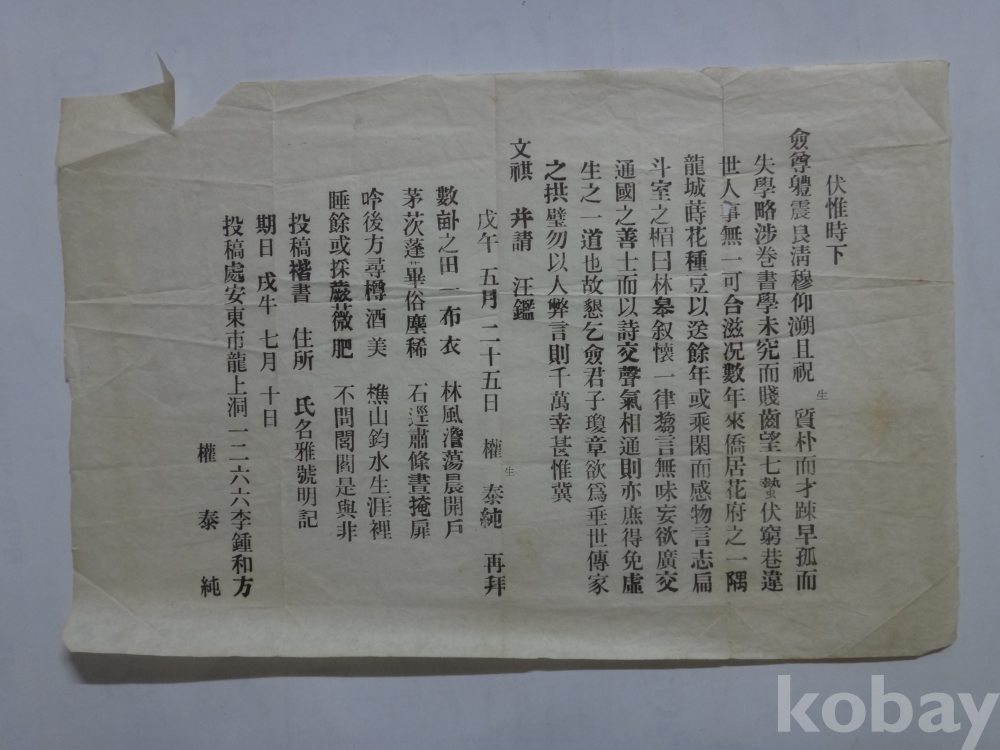 伏惟時下
僉尊軆震艮淸穆仰溯且祝生質朴而才踈早孤而
失學略涉卷書學未究而賤齒望七蟄伏窮巷違
世人事無一可合滋况數年來僑居花府之一隅
龍城蒔花種豆以送餘年或乘閑而感物言志扁
斗室之楣曰林皋叙懷一律蒭言無味妄欲廣交
通國之善士而以詩交聲氣相通則亦庶得免虛
生之一道也故懇乞僉君子瓊章欲爲垂世傳家
之拱璧勿以人弊言則千萬幸甚惟冀
文祺 幷請 汪鑑
戊午 五月 二十五日 權生泰純 再拜
數畝之田一布衣 林風澹蕩晨開戶
茅茨蓬蓽俗塵稀 石逕肅條晝掩扉
吟後方尋樽酒美 樵山釣水生涯裡
睡餘或採蕨薇肥 不問閣閣是與非
投稿楷書 住所 氏名雅號明記
期日 戊午 七月 十日
投稿處安東市龍上洞一二六六李鍾和方
權 泰 純
kobay